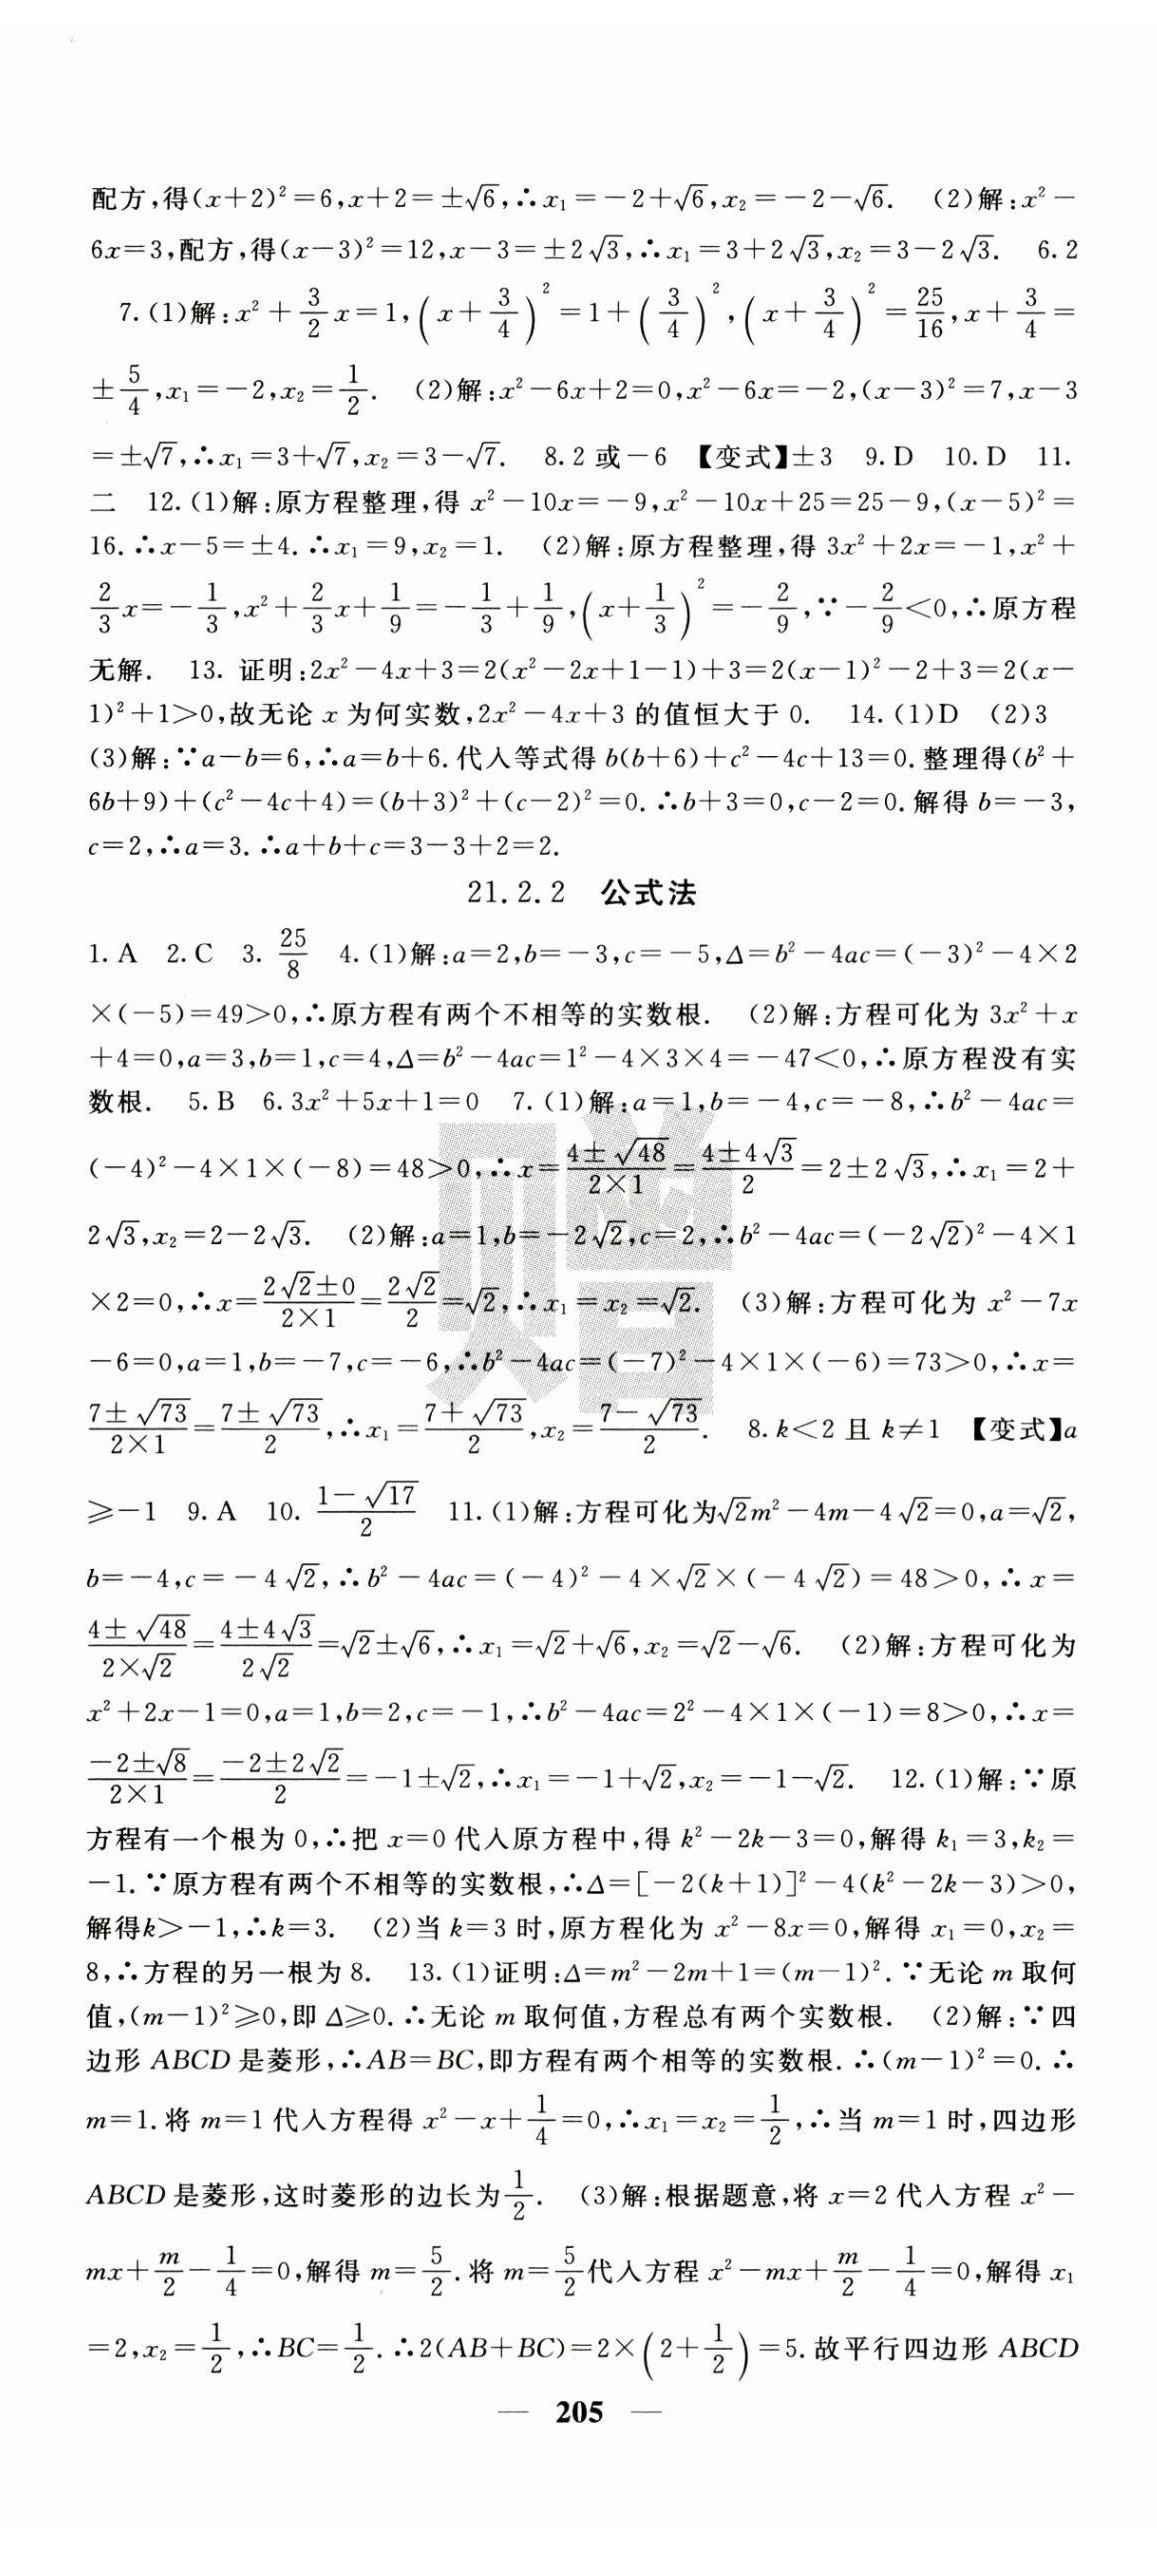 配方,得(x+2)²=6,x+2=±√6,∴x₁=-2+√6,x₂=-2-√6. (2)解:x²-
6x=3,配方,得(x-3)²=12,x-3=±2√3,∴x₁=3+2√3,x₂=3-2√3. 6.2
7.(1)解:x²+3/2x=1,(x+3/4)²=1+(3/4)²,(x+3/4)²=25/16,x+3/4=
±5/4,x₁=-2,x₂=1/2. (2)解:x²-6x+2=0,x²-6x=-2,(x-3)²=7,x-3
=±√7,∴x₁=3+√7,x₂=3-√7. 8.2或-6 【变式】±3 9.D 10.D 11.
二 12.(1)解:原方程整理,得 x²-10x=-9,x²-10x+25=25-9,(x-5)²=
16.∴x-5=±4.∴x₁=9,x₂=1. (2)解:原方程整理,得 3x²+2x=-1,x²+
2/3x=-1/3,x²+2/3x+1/9=-1/3+1/9,(x+1/3)²=-2/9,∵-2/9<0,∴原方程
无解. 13. 证明:2x²-4x+3=2(x²-2x+1-1)+3=2(x-1)²-2+3=2(x-
1)²+1>0,故无论 x 为何实数,2x²-4x+3 的值恒大于 0. 14.(1)D (2)3
(3)解:∵a-b=6,∴a=b+6.代入等式得 b(b+6)+c²-4c+13=0.整理得(b²+
6b+9)+(c²-4c+4)=(b+3)²+(c-2)²=0.∴b+3=0,c-2=0.解得 b=-3,
c=2,∴a=3.∴a+b+c=3-3+2=2.
21.2.2 公式法
1.A 2.C 3. 25/8 4.(1)解:a=2,b=-3,c=-5,Δ=b²-4ac=(-3)²-4×2
×(-5)=49>0,∴原方程有两个不相等的实数根. (2)解:方程可化为 3x²+x
+4=0,a=3,b=1,c=4,Δ=b²-4ac=1²-4×3×4=-47<0,∴原方程没有实
数根. 5.B 6.3x²+5x+1=0 7.(1)解:a=1,b=-4,c=-8,∴b²-4ac=
(-4)²-4×1×(-8)=48>0,∴x=(4±√48)/(2×1)=(4±4√3)/2=2±2√3,∴x₁=2+
2√3,x₂=2-2√3. (2)解:a=1,b=-2√2,c=2,∴b²-4ac=(-2√2)²-4×1
×2=0,∴x=(2√2±0)/(2×1)=2√2/2=√2,∴x₁=x₂=√2. (3)解:方程可化为 x²-7x
-6=0,a=1,b=-7,c=-6,∴b²-4ac=(-7)²-4×1×(-6)=73>0,∴x=
(7±√73)/(2×1)=(7±√73)/2,∴x₁=(7+√73)/2,x₂=(7-√73)/2. 8.k<2 且 k≠1 【变式】a
≥-1 9.A 10. (1-√17)/2 11.(1)解:方程可化为√2m²-4m-4√2=0,a=√2,
b=-4,c=-4√2,∴b²-4ac=(-4)²-4×√2×(-4√2)=48>0,∴x=
(4±√48)/(2×√2)=(4±4√3)/(2√2)=√2±√6,∴x₁=√2+√6,x₂=√2-√6. (2)解:方程可化为
x²+2x-1=0,a=1,b=2,c=-1,∴b²-4ac=2²-4×1×(-1)=8>0,∴x=
(-2±√8)/(2×1)=(-2±2√2)/2=-1±√2,∴x₁=-1+√2,x₂=-1-√2. 12.(1)解:∵原
方程有一个根为 0,∴把 x=0 代入原方程中,得 k²-2k-3=0,解得 k₁=3,k₂=
-1.∵原方程有两个不相等的实数根,∴Δ=[-2(k+1)]²-4(k²-2k-3)>0,
解得k>-1,∴k=3. (2)当 k=3 时,原方程化为 x²-8x=0,解得 x₁=0,x₂=
8,∴方程的另一根为8. 13.(1)证明:Δ=m²-2m+1=(m-1)².∵无论 m 取何
值,(m-1)²≥0,即 Δ≥0.∴无论 m 取何值,方程总有两个实数根. (2)解:∵四
边形 ABCD 是菱形,∴AB=BC,即方程有两个相等的实数根.∴(m-1)²=0.∴
m=1.将 m=1 代入方程得 x²-x+1/4=0,∴x₁=x₂=1/2,∴当 m=1 时,四边形
ABCD 是菱形,这时菱形的边长为1/2. (3)解:根据题意,将 x=2 代入方程 x²-
mx+m/2-1/4=0,解得 m=5/2.将 m=5/2代入方程 x²-mx+m/2-1/4=0,解得 x₁
=2,x₂=1/2,∴BC=1/2.∴2(AB+BC)=2×(2+1/2)=5.故平行四边形 ABCD
— 205 —
赠